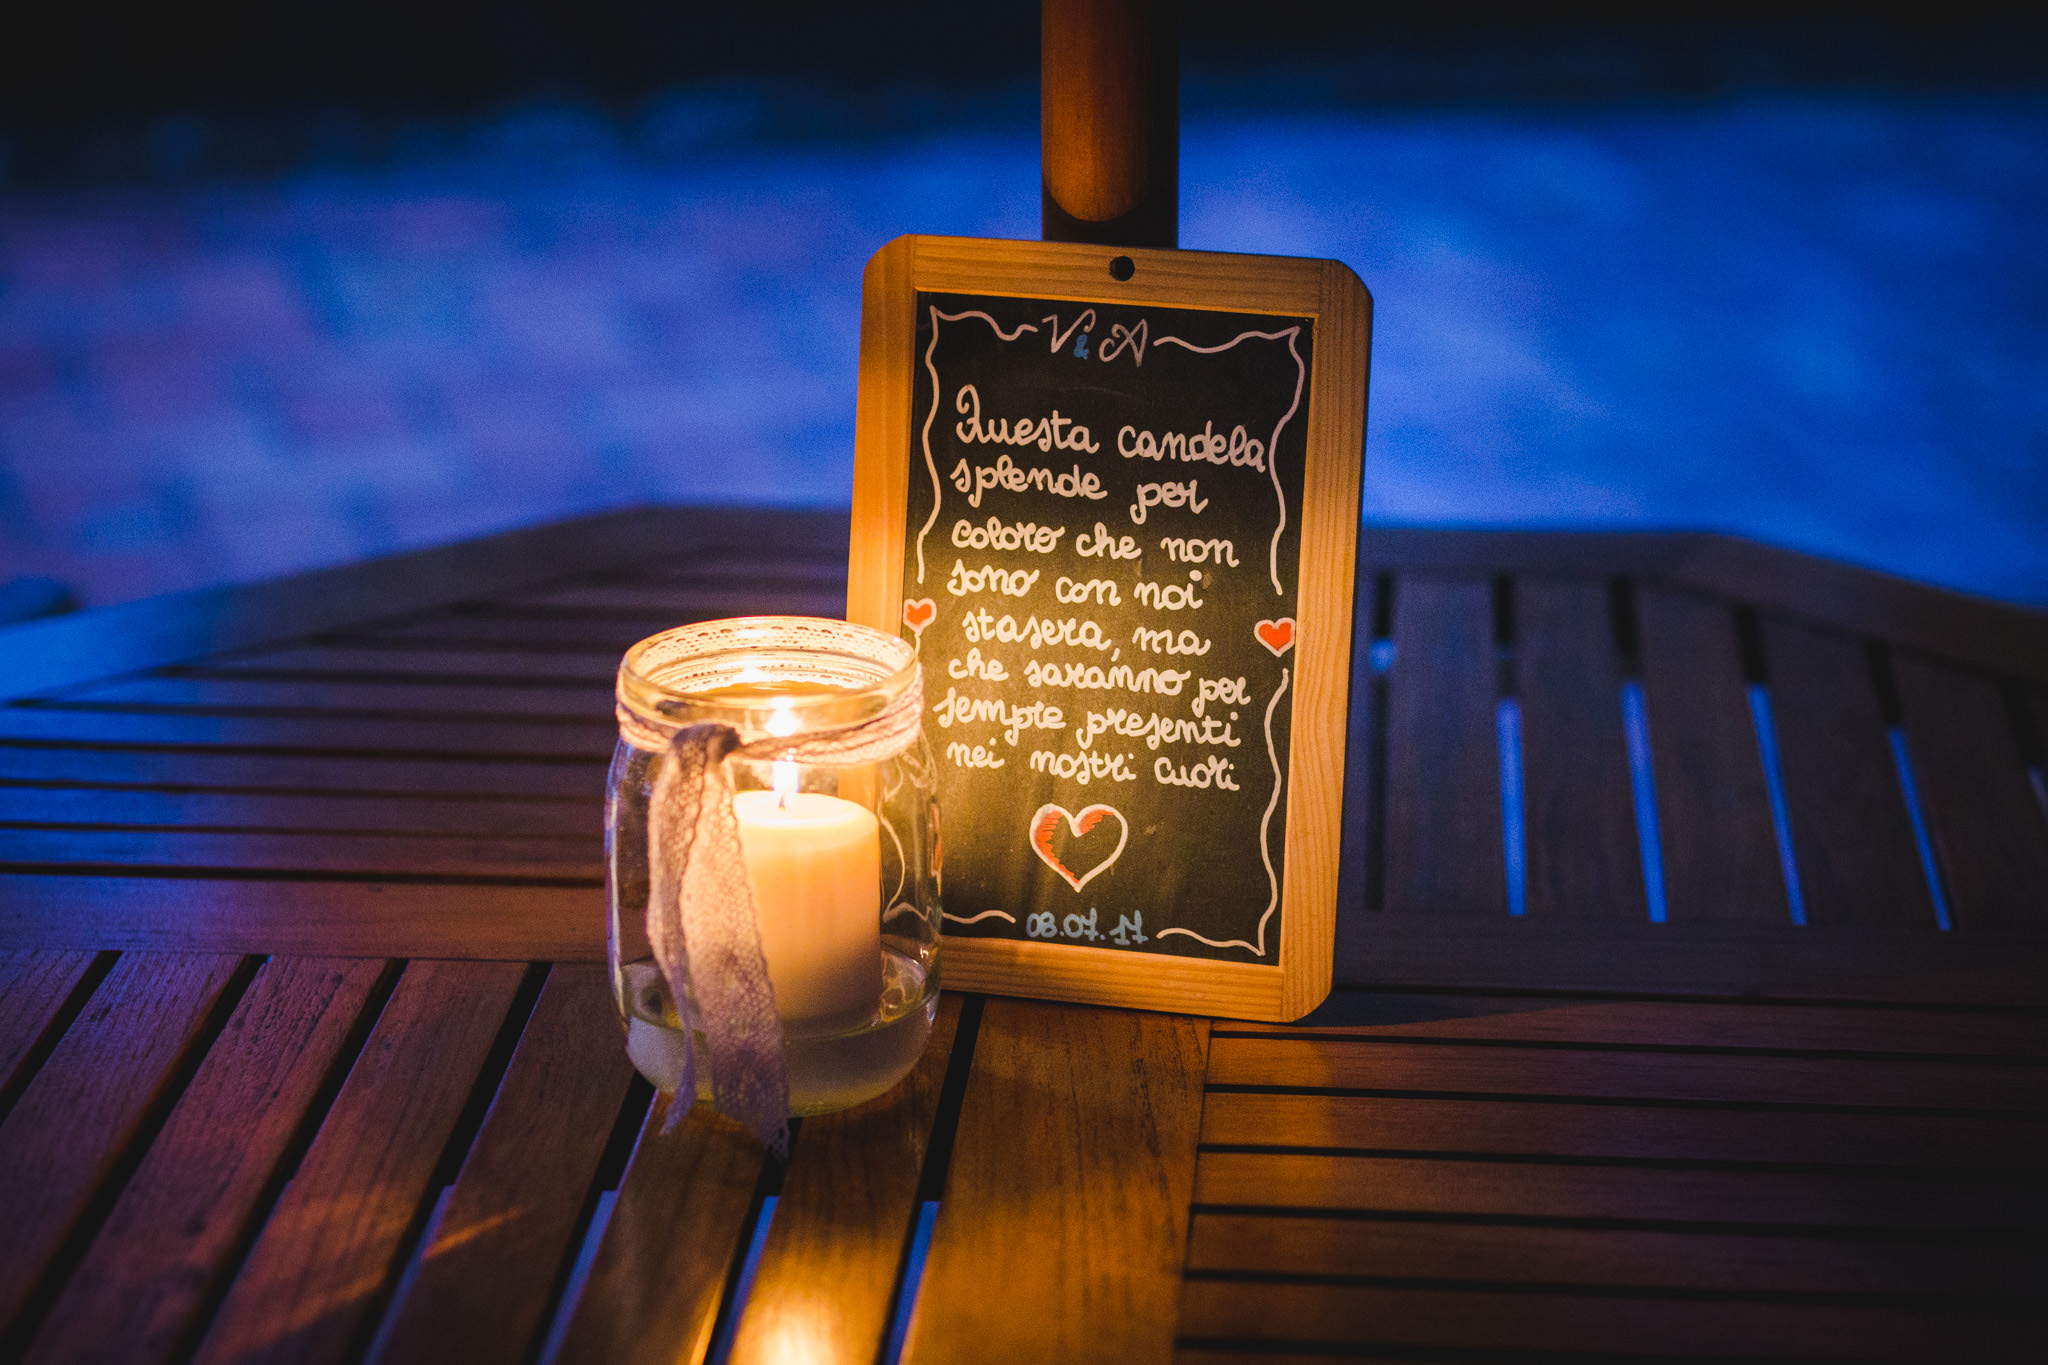 V & A
Questa candela
splende per
coloro che non
sono con noi
stasera, ma
che saranno per
sempre presenti
nei nostri cuori
08.07.17